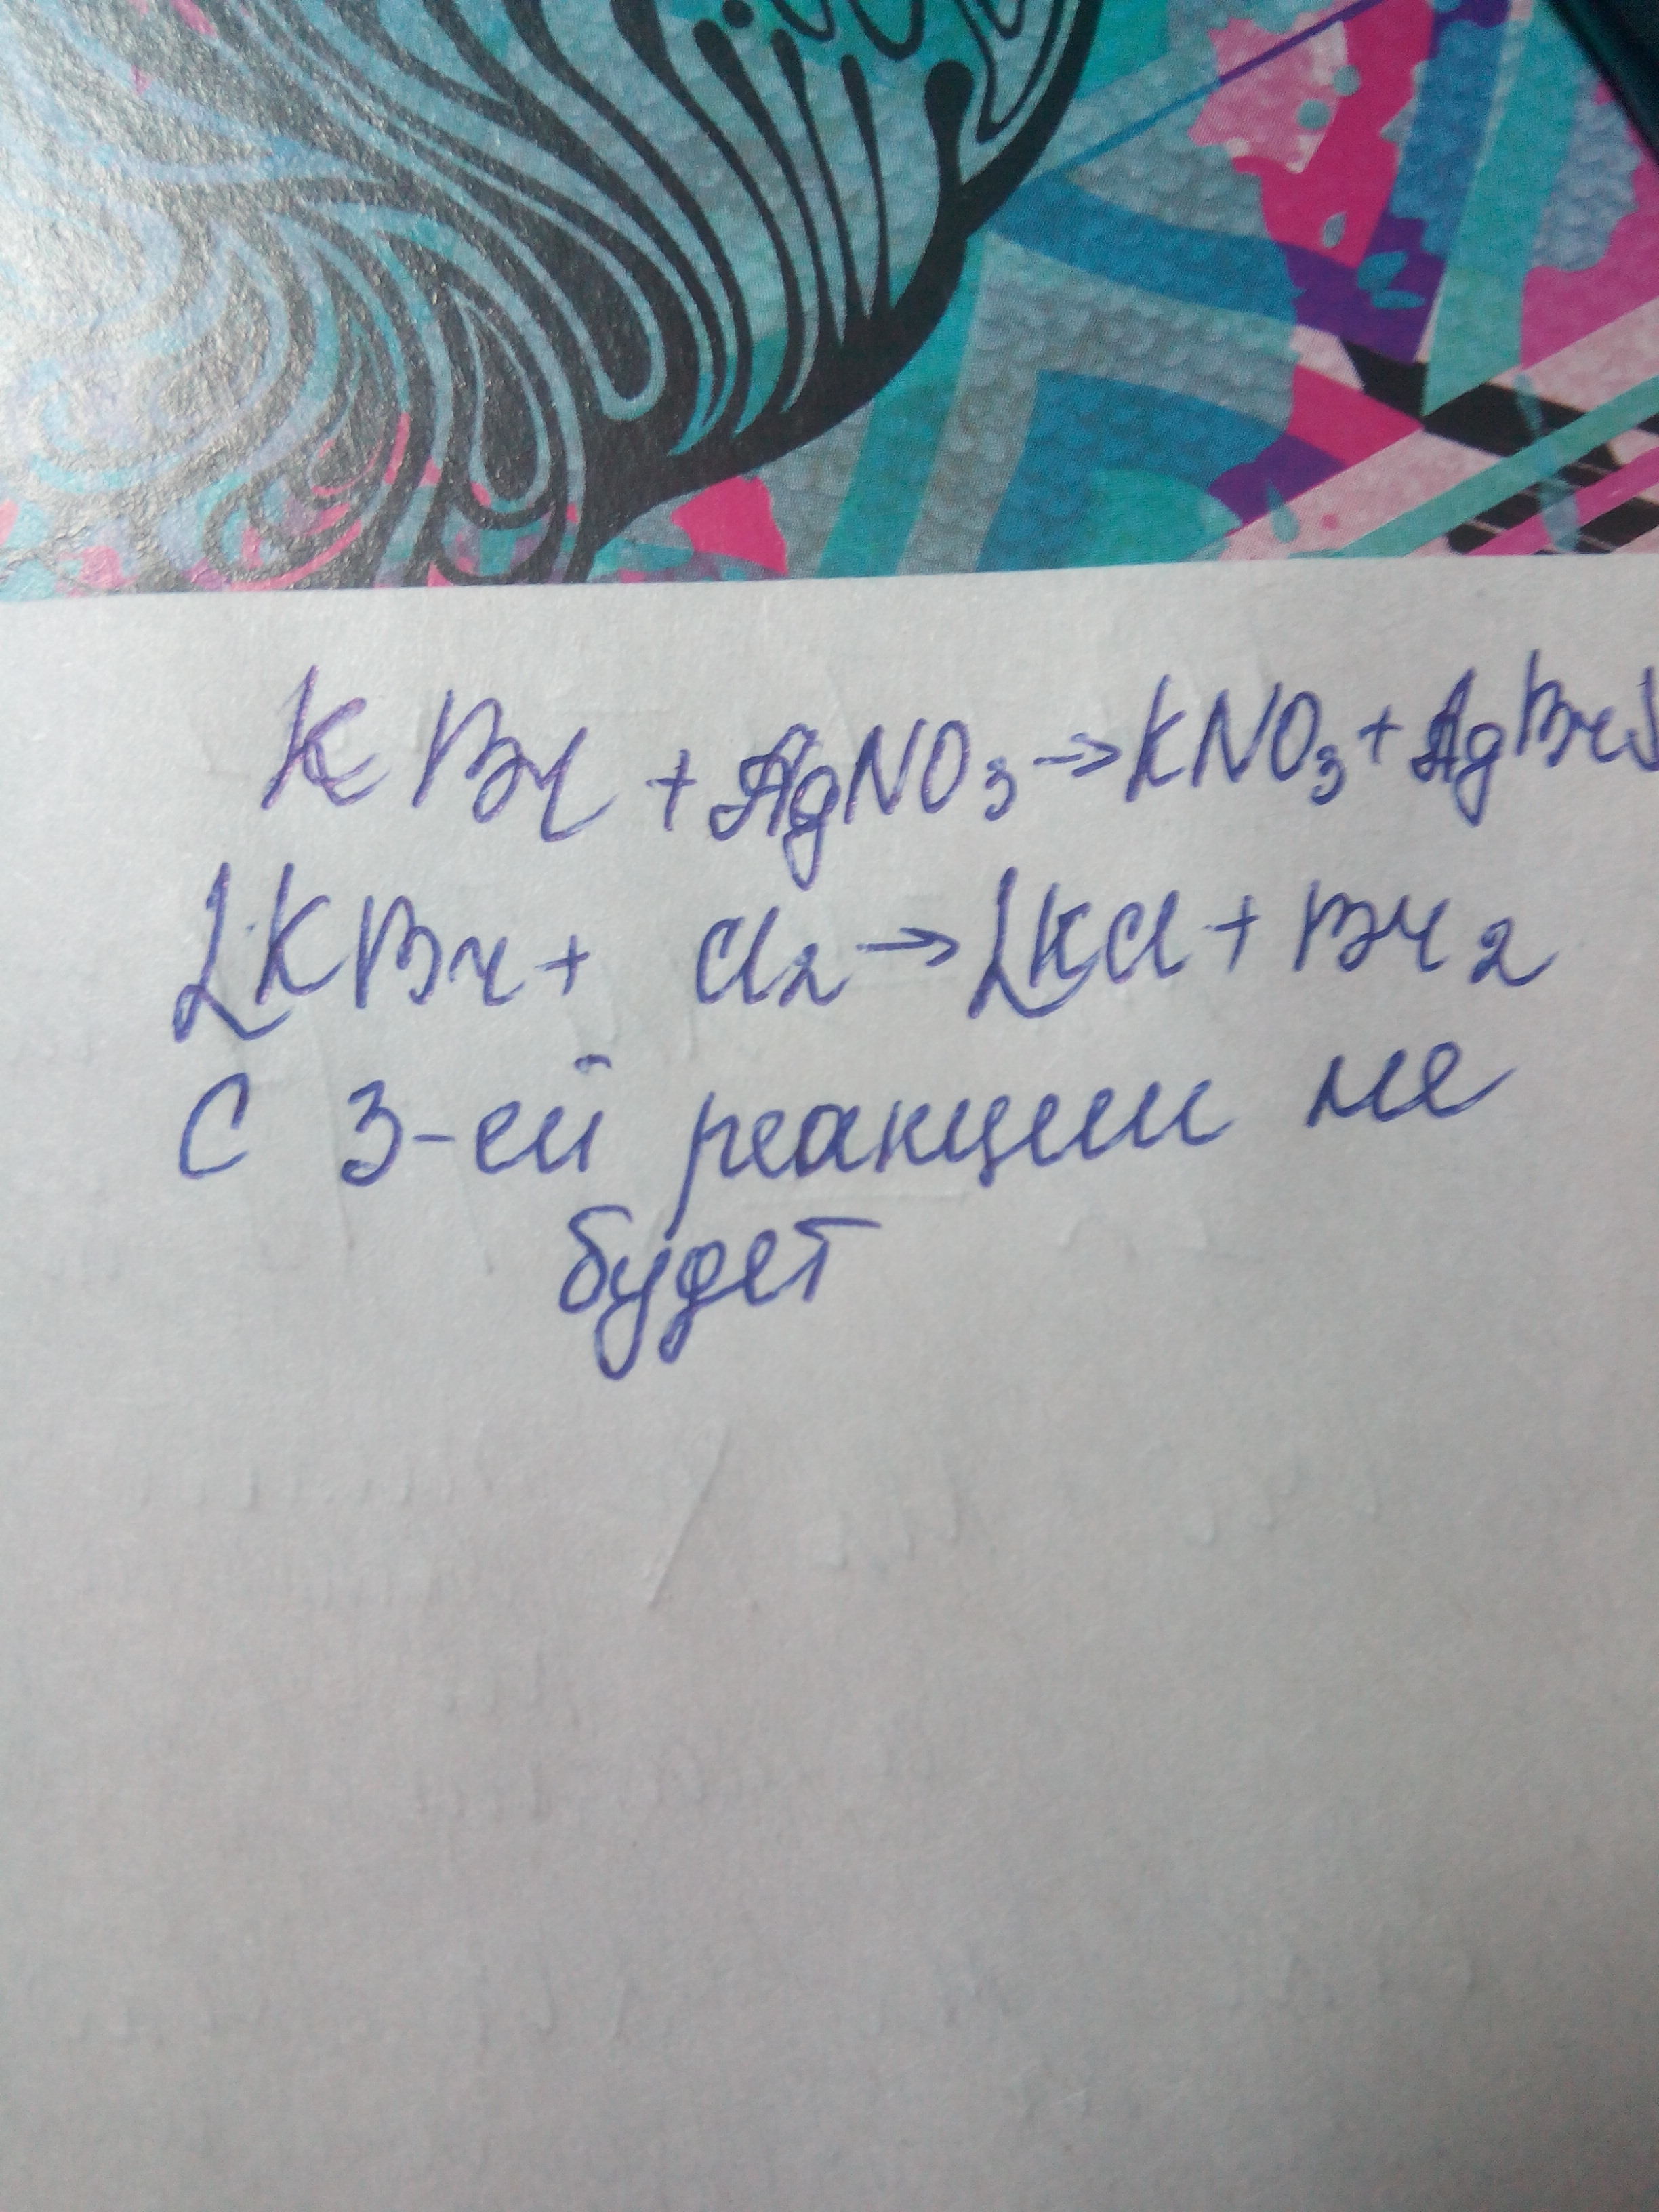 KBr + AgNO3 → KNO3 + AgBr↓
2KBr + Cl2 → 2KCl + Br2
С 3-ей реакции не
будет